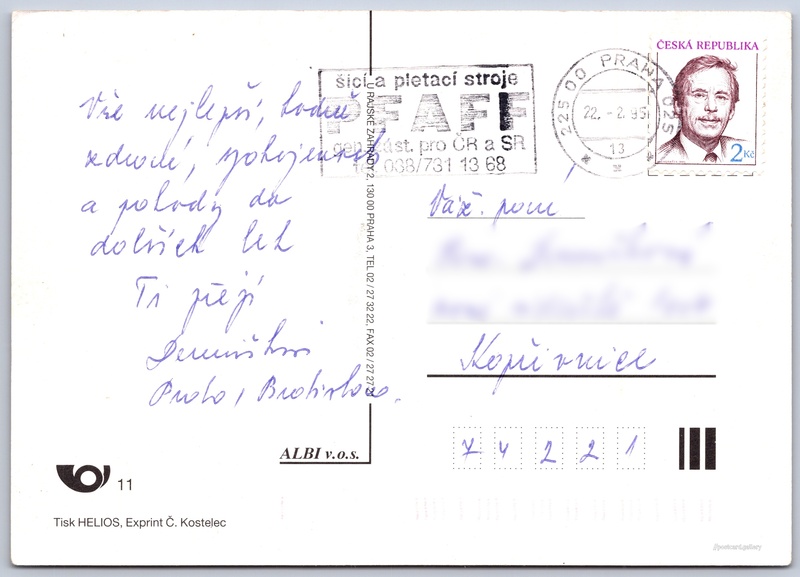 Vše nejlepší, hodně
zdraví, spokojenosti
a pohody do
dalších let
Ti přejí
Praha, Bratislava.
šicí a pletací stroje
PFAFF
gen. zást. pro ČR a SR
tel. 038/731 13 68
225 00 PRAHA 025
22. -2. 95
13
ČESKÁ REPUBLIKA
2 Kč
U RAJSKÉ ZAHRADY 2, 130 00 PRAHA 3, TEL 02 / 27 32 22, FAX 02 / 27 27 2
ALBI v.o.s.
Váž. paní
Kopřivnice
74221
11
Tisk HELIOS, Exprint Č. Kostelec